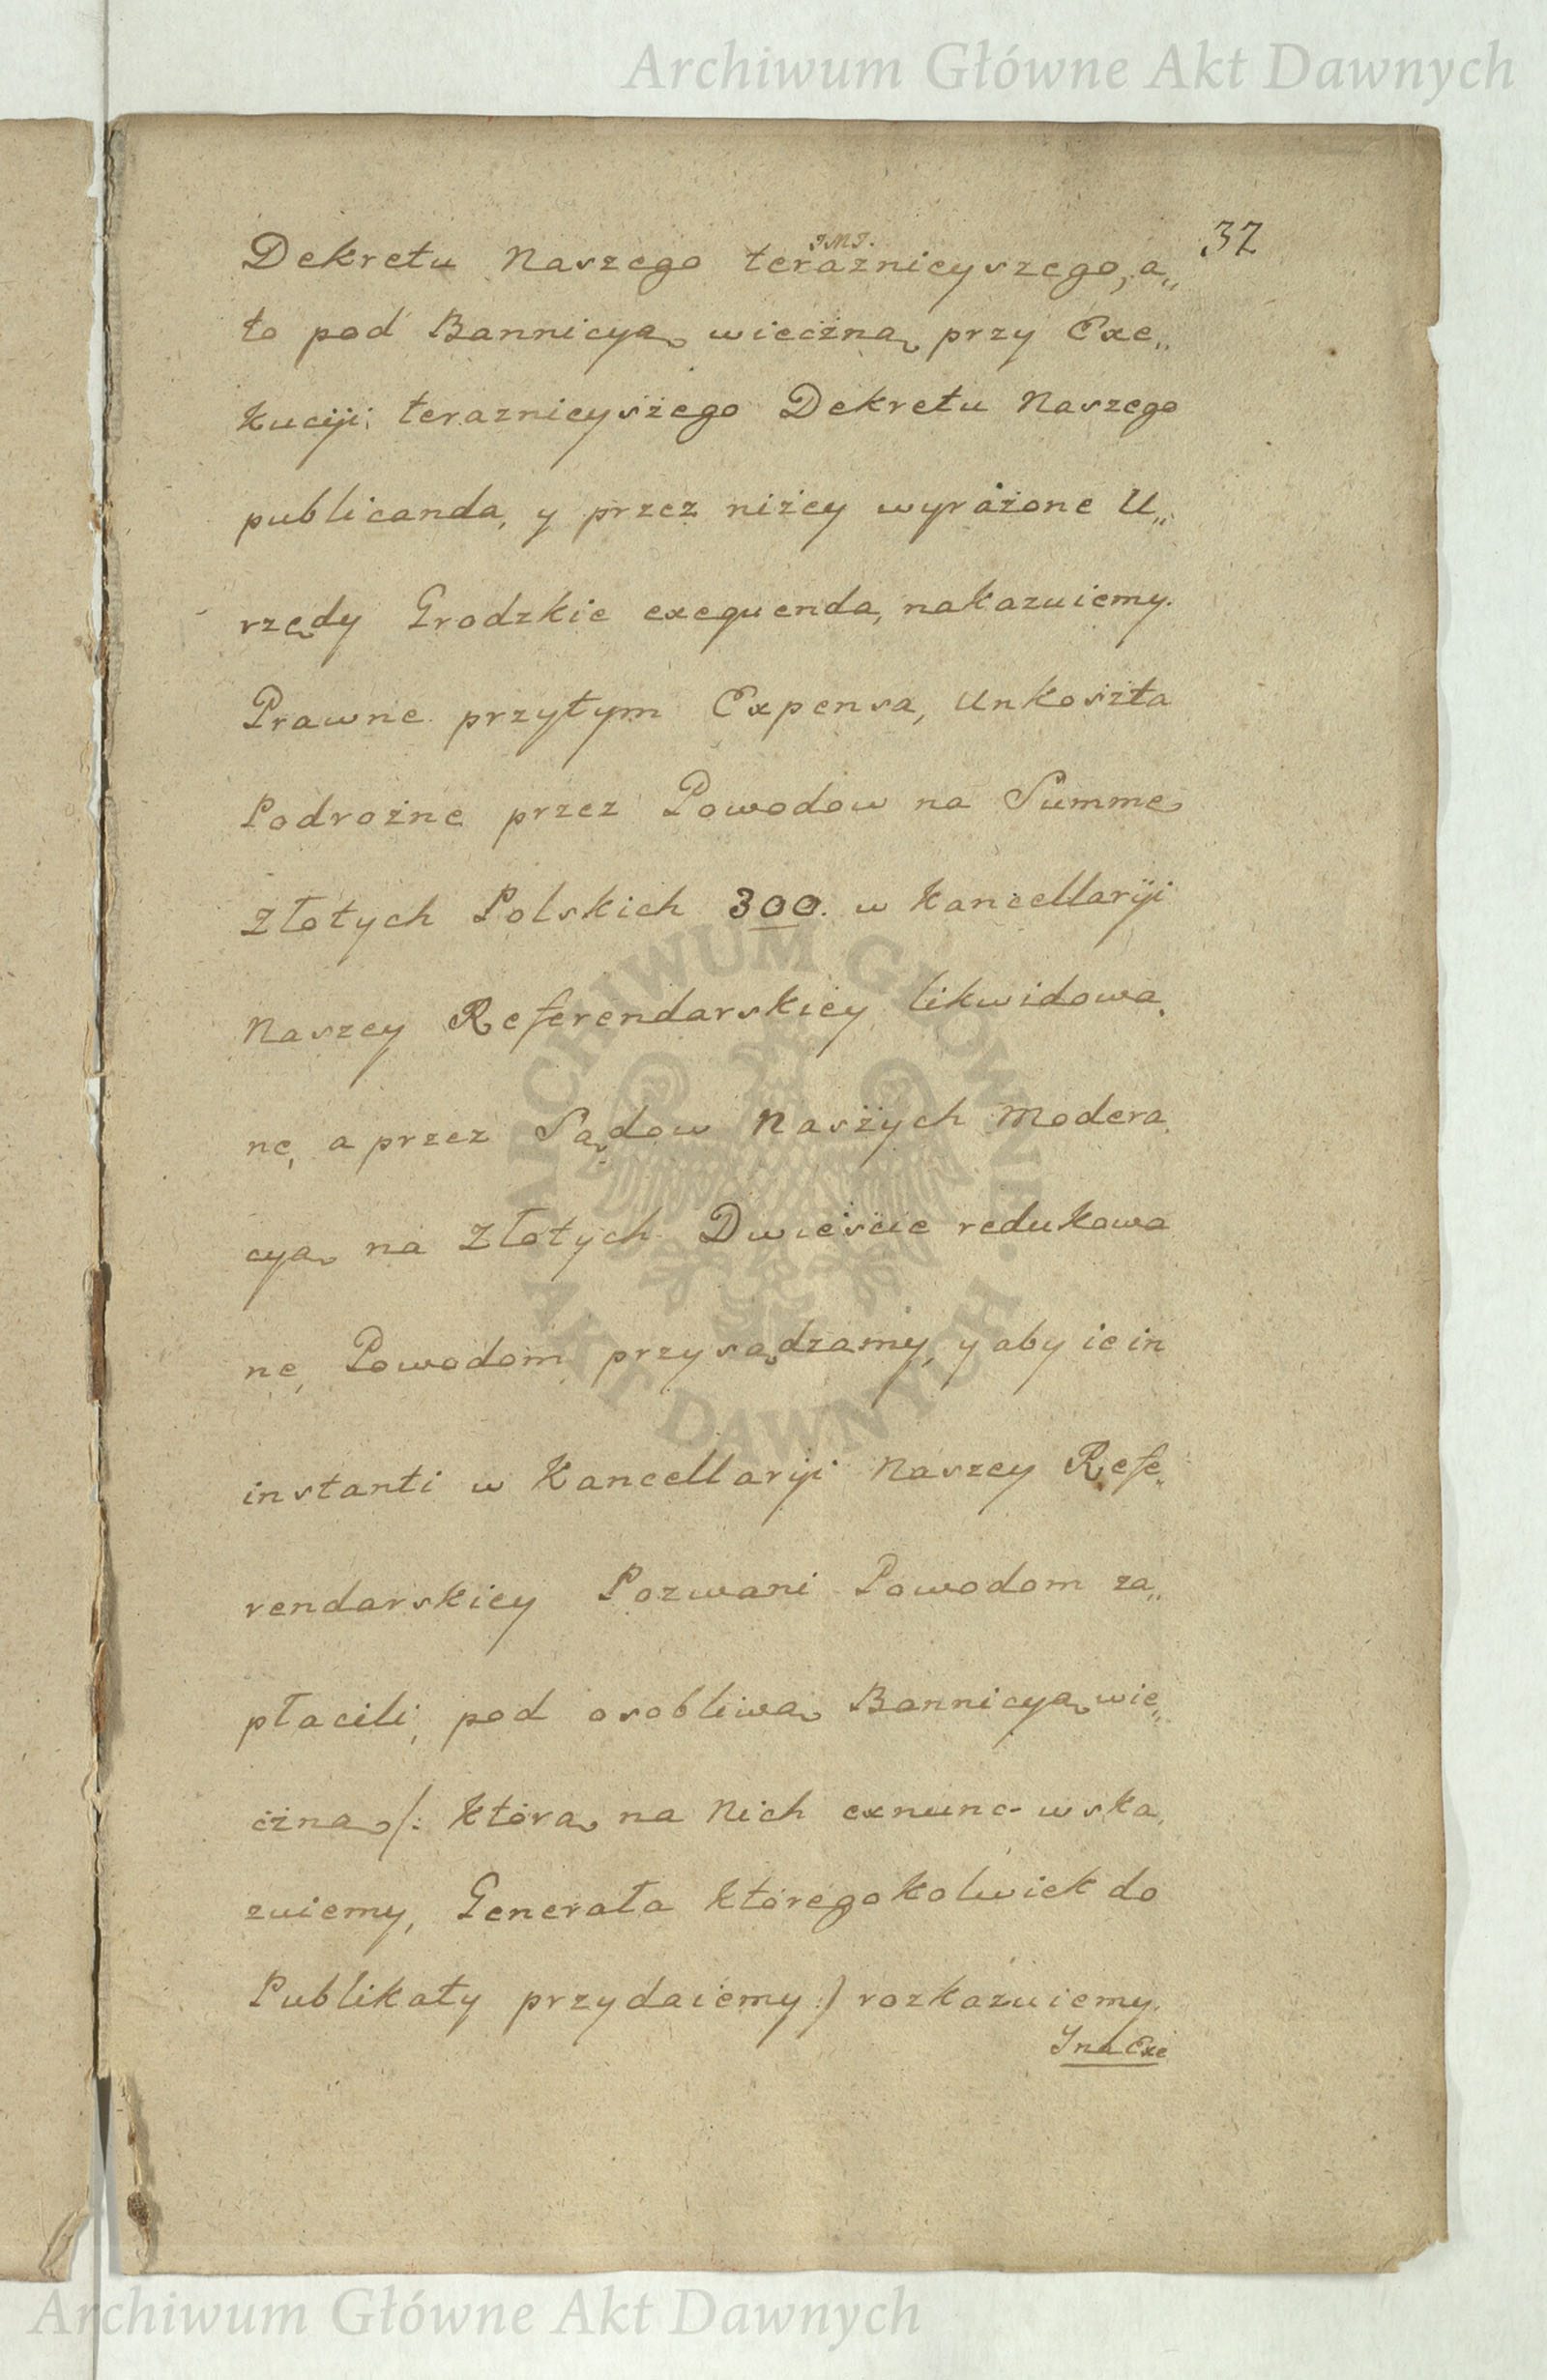 Archiwum Główne Akt Dawnych
37
JMJ.
Dekretu Naszego teraznieyszego, a„
to pod Bannicyą wieczną przy Exe„
kucÿi teraznieyszego Dekretu Naszego
publicanda, y przez niżey wyrażone U„
rzędy Grodzkie exequenda, nakazuiemy.
Prawne przytym Expensa, Unkoszta
Podrożne przez Powodow na Summę
Złotych Polskich 300. w Kancellarÿi
Naszey Referendarskiey likwidowa„
ne, a przez Sądow Naszych Modera„
cyą na Złotych Dwieście redukowa
ne, Powodom przysądzamy, y aby ie in
instanti w Kancellarÿi Naszey Refe„
rendarskiey Pozwani Powodom za„
płacili, pod osobliwą Bannicyą wie„
czną /: którą na Nich exnunc wska„
zuiemy, Generała któregokolwiek do
Publikaty przydaiemy :/ rozkazuiemy.
ARCHIWUM GŁÓWNE AKT DAWNYCH
Archiwum Główne Akt Dawnych